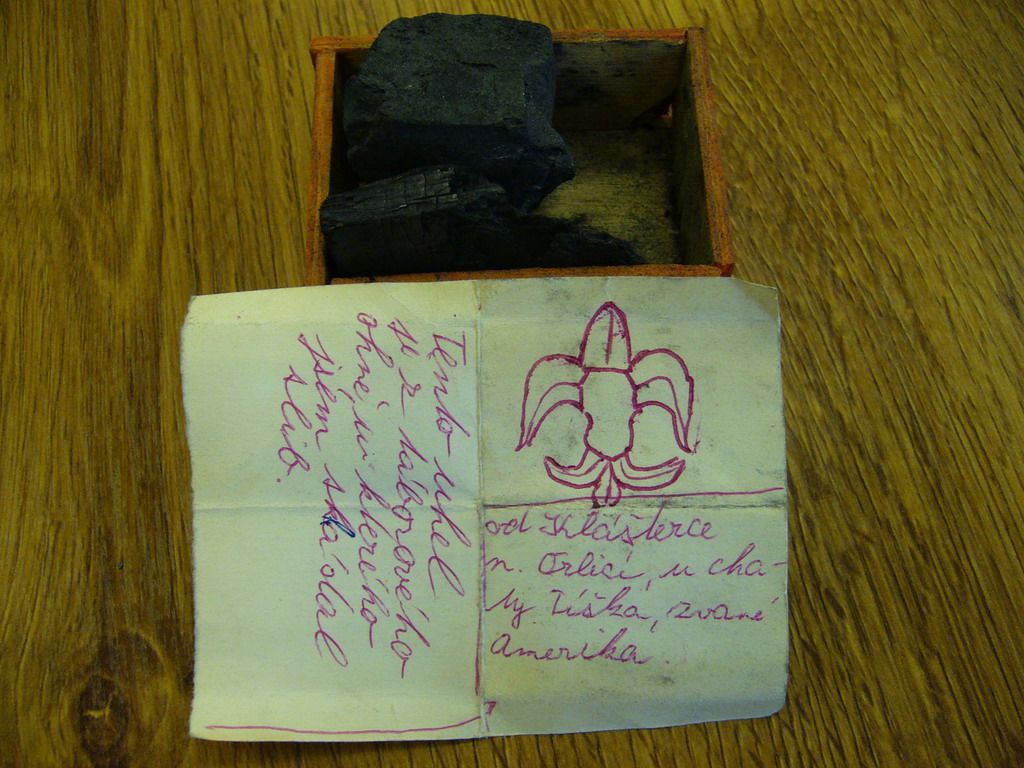 Tento uhel
je z táborového
ohně u kterého
jsem skládal
slib.
od Klášterce
n. Orlici, u cha-
ty zvané
Amerika.